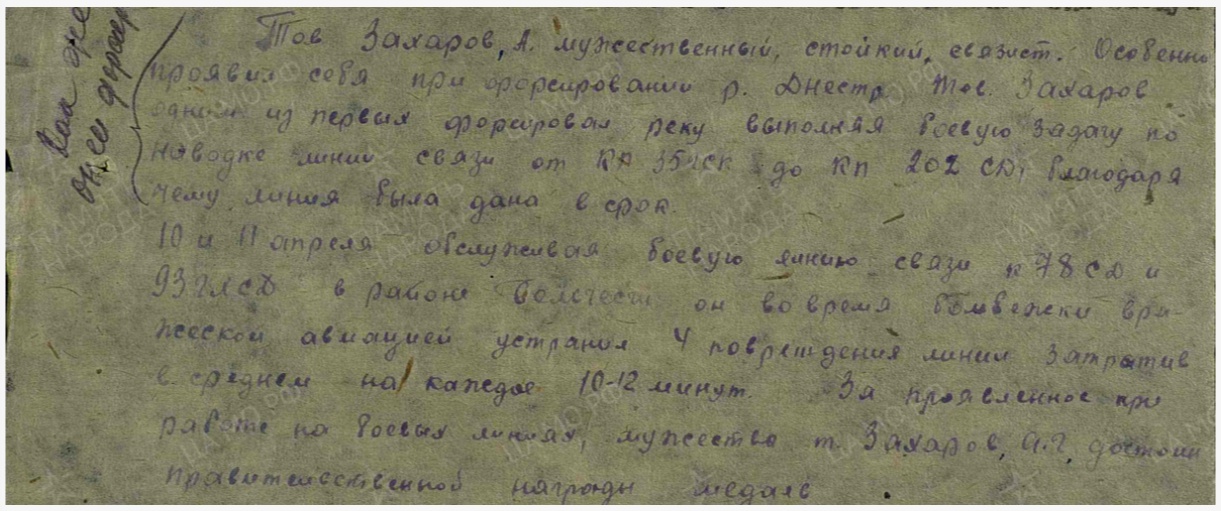 Тов Захаров, А. мужественный, стойкий, связист. Особенно
проявил себя при форсировании р. Днестр. Тов. Захаров
одним из первых форсировал реку выполняя боевую задачу по
наводке линии связи от КП 35 гск до КП 202 СД, благодаря
чему линия была дана в срок.
10 и 11 апреля обслуживая боевую линию связи к 78 СД и
93 гв СД в районе он во время бомбежки вра-
жеской авиацией устранил 4 повреждения линии затратив
в среднем на каждое 10-12 минут. За проявленное при
работе на боевых линиях, мужество т. Захаров, А.Г, достоин
правительственной награды медаль